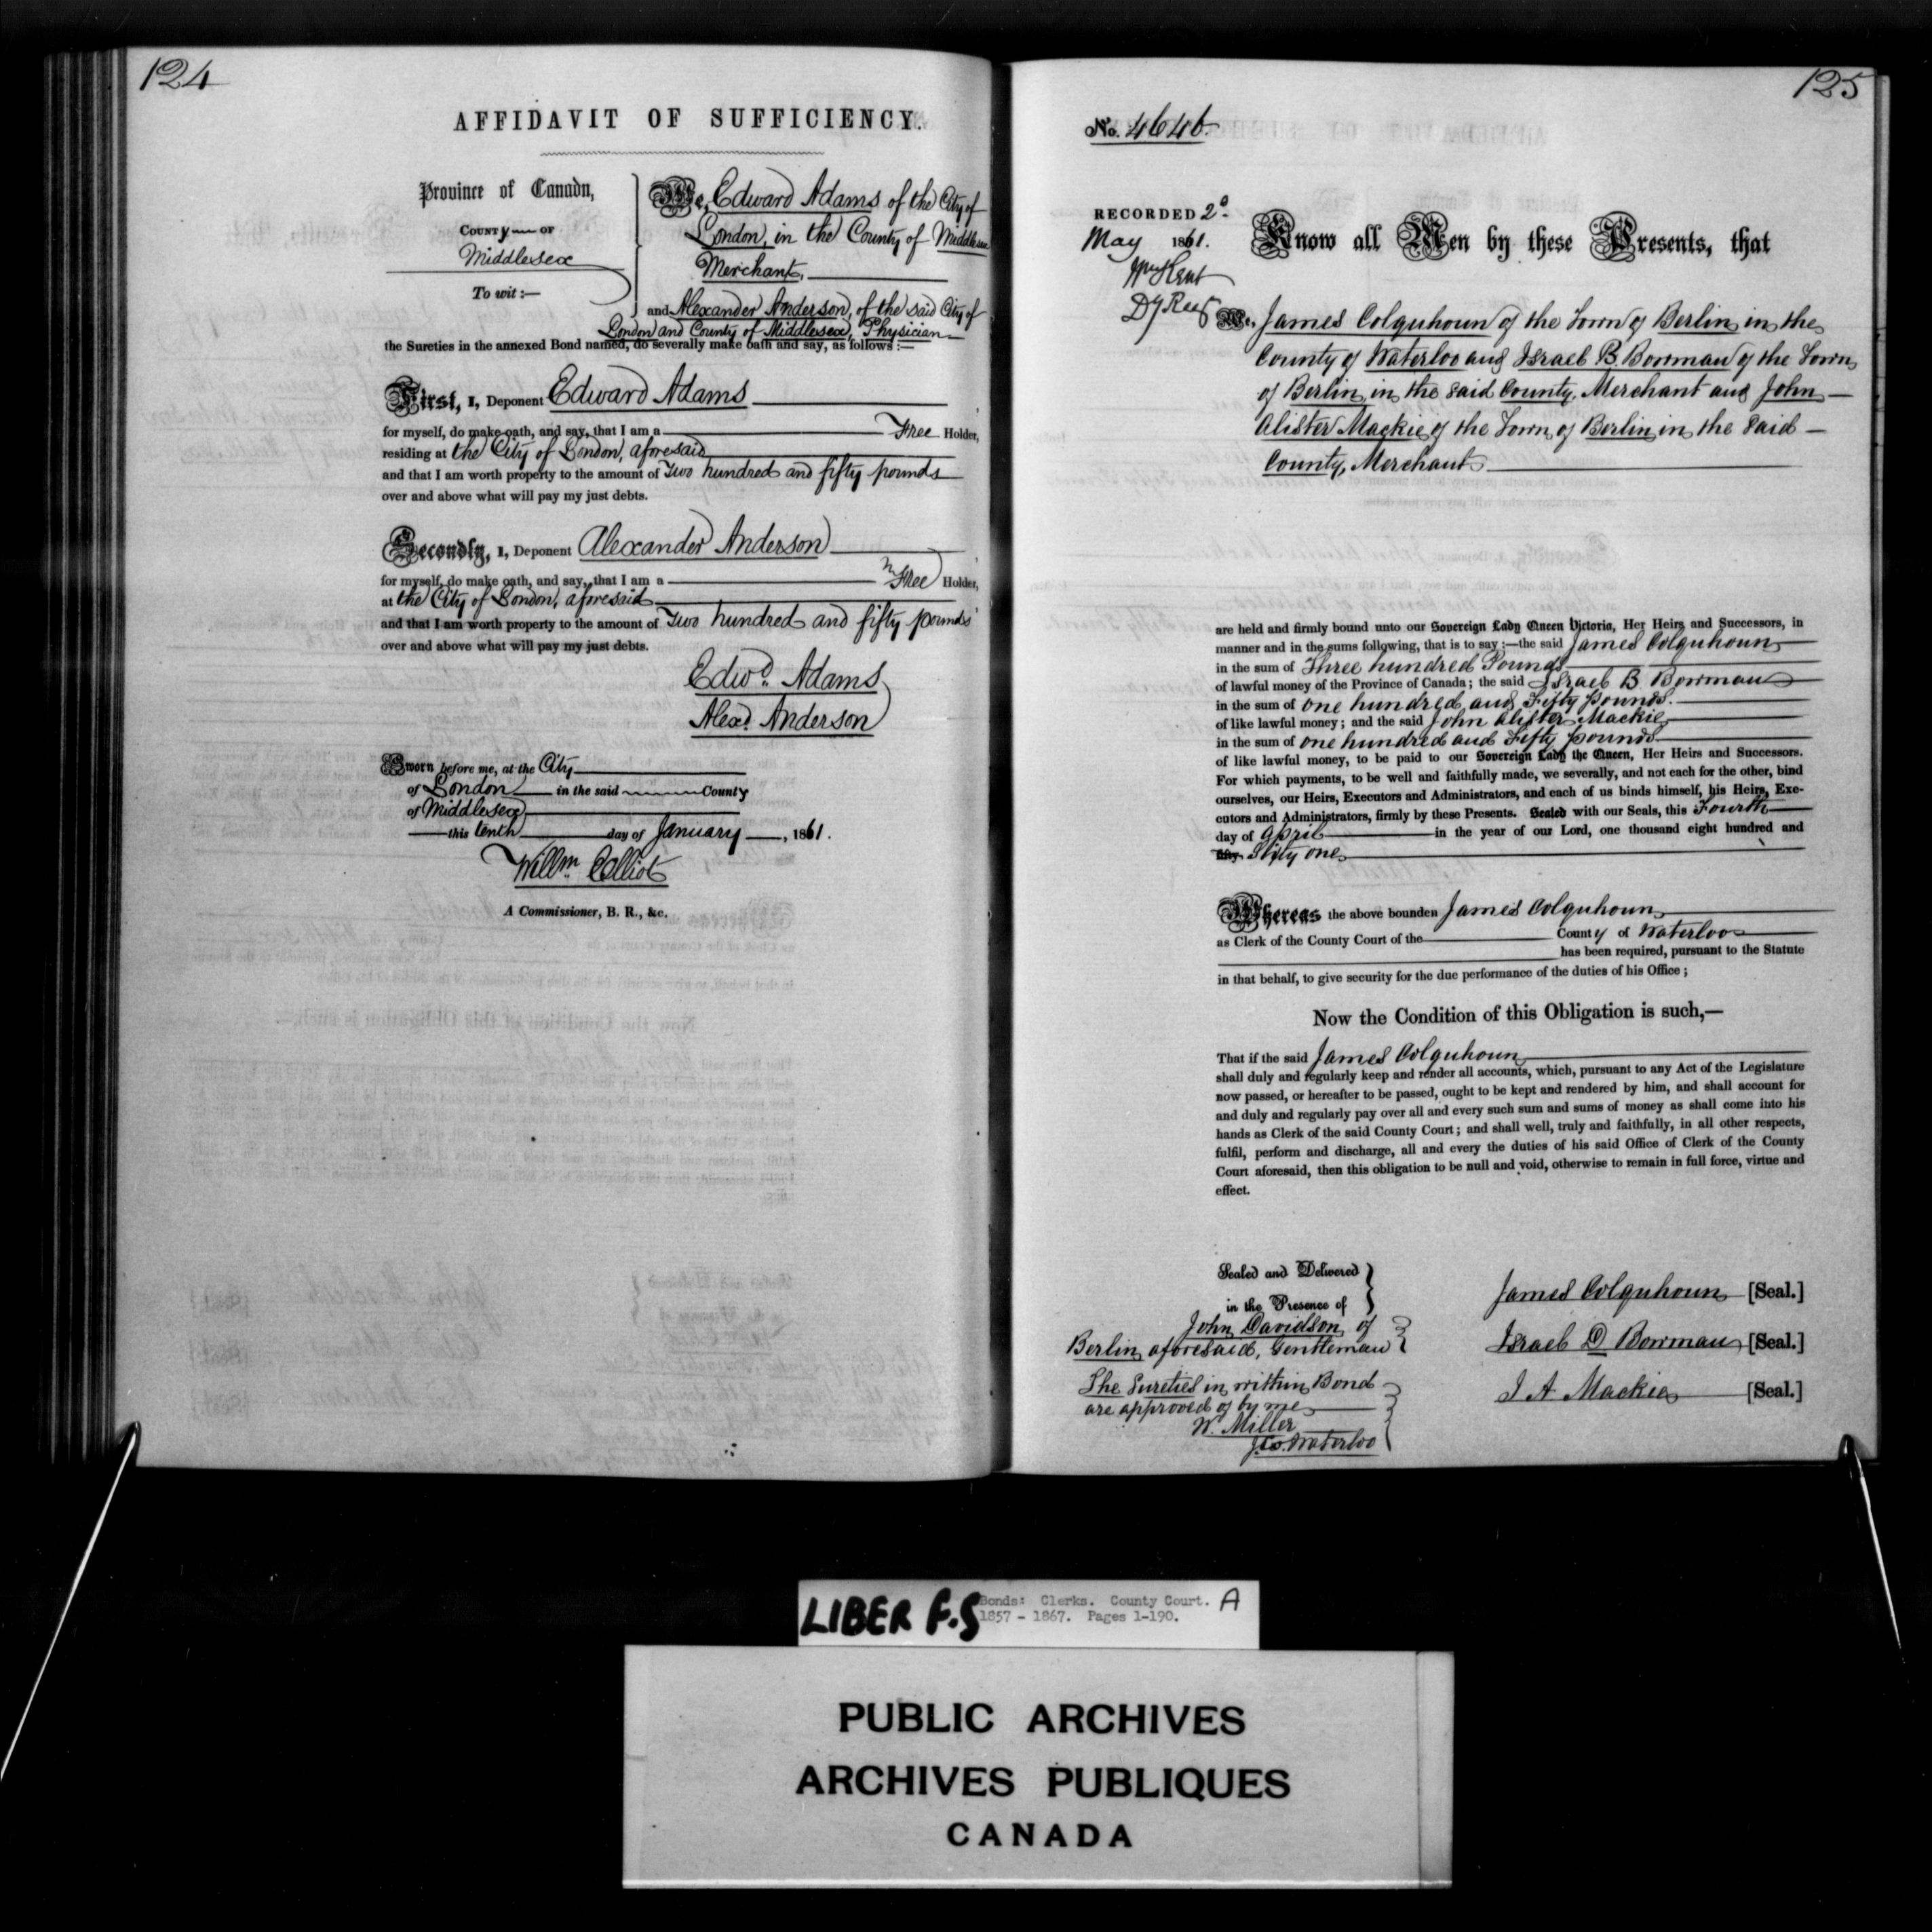 124
AFFIDAVIT OF SUFFICIENCY.
Province of Canada,
COUNTY OF
Middlesex
To wit:—
We, Edward Adams of the City of
London, in the County of Middlesex
Merchant,
and Alexander Anderson, of the said City of
London and County of Middlesex, Physician
the Sureties in the annexed Bond named, do severally make oath and say, as follows:—
First, I, Deponent Edward Adams
for myself, do make oath, and say, that I am a Free Holder,
residing at the City of London, aforesaid
and that I am worth property to the amount of Two hundred and fifty pounds
over and above what will pay my just debts.
Secondly, I, Deponent Alexander Anderson
for myself, do make oath, and say, that I am a Free Holder,
at the City of London, aforesaid
and that I am worth property to the amount of Two hundred and fifty pounds
over and above what will pay my just debts.
Edwd. Adams
Alexd. Anderson
Sworn before me, at the City
of London in the said County
of Middlesex
this tenth day of January, 1861.
Willm Elliot
A Commissioner, B. R., &c.
125
No. 4646.
RECORDED 2d.
May 1861.
Wm Kent
Dy Reg
Know all Men by these Presents, that
We, James Colquhoun of the Town of Berlin in the
County of Waterloo and Israel B. Bowman of the Town
of Berlin in the said County, Merchant and John
Alister Mackie of the Town of Berlin in the said
County, Merchant
are held and firmly bound unto our Sovereign Lady Queen Victoria, Her Heirs and Successors, in
manner and in the sums following, that is to say:—the said James Colquhoun
in the sum of Three hundred Pounds
of lawful money of the Province of Canada; the said Israel B Bowman
in the sum of one hundred and Fifty pounds.
of like lawful money; and the said John Alister Mackie
in the sum of one hundred and Fifty pounds
of like lawful money, to be paid to our Sovereign Lady the Queen, Her Heirs and Successors.
For which payments, to be well and faithfully made, we severally, and not each for the other, bind
ourselves, our Heirs, Executors and Administrators, and each of us binds himself, his Heirs, Exe-
cutors and Administrators, firmly by these Presents. Sealed with our Seals, this Fourth
day of April in the year of our Lord, one thousand eight hundred and
fifty Sixty one
Whereas the above bounden James Colquhoun
as Clerk of the County Court of the County of Waterloo
has been required, pursuant to the Statute
in that behalf, to give security for the due performance of the duties of his Office;
Now the Condition of this Obligation is such,—
That if the said James Colquhoun
shall duly and regularly keep and render all accounts, which, pursuant to any Act of the Legislature
now passed, or hereafter to be passed, ought to be kept and rendered by him, and shall account for
and duly and regularly pay over all and every such sum and sums of money as shall come into his
hands as Clerk of the said County Court; and shall well, truly and faithfully, in all other respects,
fulfil, perform and discharge, all and every the duties of his said Office of Clerk of the County
Court aforesaid, then this obligation to be null and void, otherwise to remain in full force, virtue and
effect.
Sealed and Delivered
in the Presence of
John Davidson of
Berlin aforesaid, Gentleman
The Sureties in within Bond
are approved of by me
W. Miller
J.Co. Waterloo
James Colquhoun [Seal.]
Israel D Bowman [Seal.]
J A Mackie [Seal.]
LIBER F.S
Bonds: Clerks. County Court. A
1857 - 1867. Pages 1-190.
PUBLIC ARCHIVES
ARCHIVES PUBLIQUES
CANADA